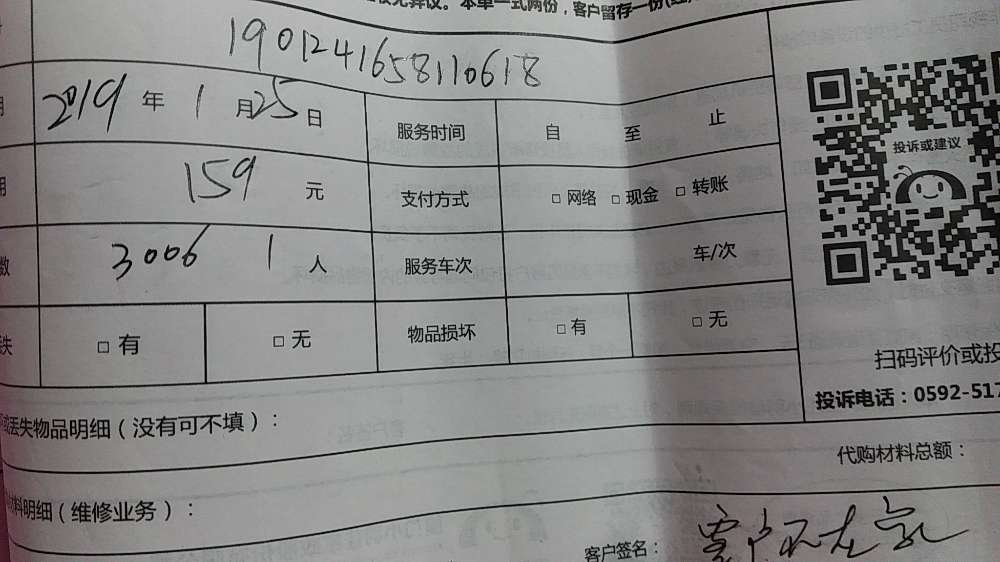 无异议。本单一式两份，客户留存一份
1901241658110618
2019 年 1 月 25 日 服务时间 自 至 止
投诉或建议
159 元 支付方式 □ 网络 □ 现金 □ 转账
3006 1 人 服务车次 车/次
□ 有 □ 无 物品损坏 □ 有 □ 无
扫码评价或投
投诉电话：0592-517
丢失物品明细（没有可不填）：
代购材料总额：
料明细（维修业务）：
客户签名：